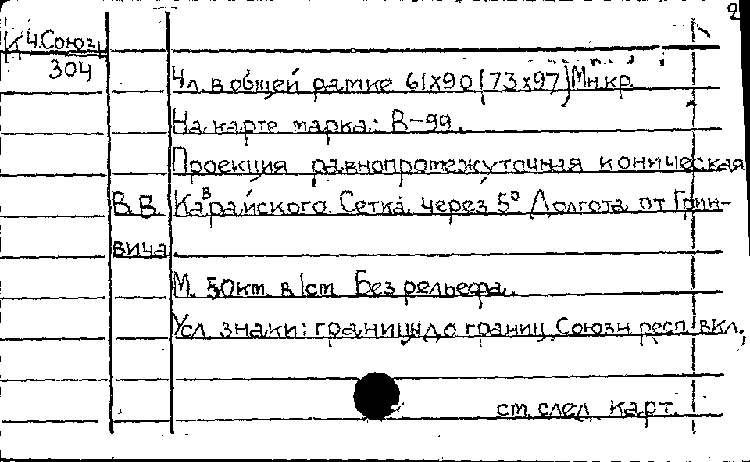 2
К 4.Союз,
304
4 л. в общей рамке 61х90 [73х97] Мн.кр.
На карте марка: В-99.
Проекция равнопромежуточная коническая
В.В. Каврайского. Сетка через 5° Долгота от Грин-
вича.
М. 50км в 1см Без рельефа.
Усл. знаки: границы до границ Союзн респ. вкл,
см след. карт.